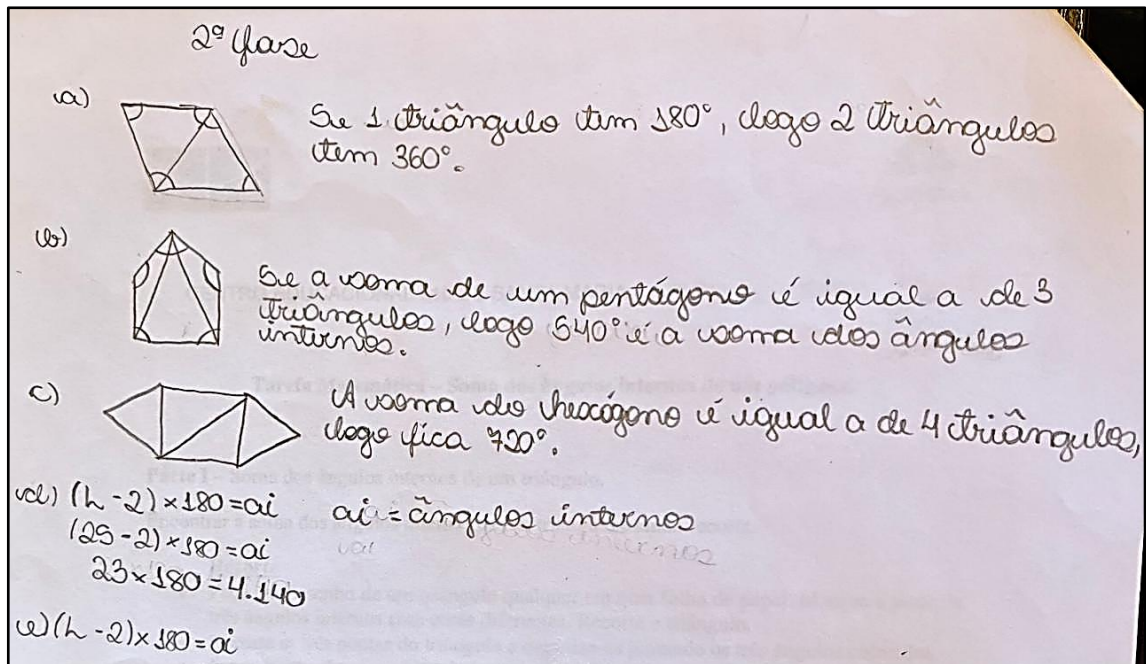 2ª fase
a) Se 1 triângulo tem 180°, logo 2 triângulos
tem 360°.
b) Se a soma de um pentágono é igual a de 3
triângulos, logo 540° é a soma dos ângulos
internos.
c) A soma do hexágono é igual a de 4 triângulos,
logo fica 720°.
d) (h - 2) × 180 = ai   ai = ângulos internos
(25 - 2) × 180 = ai
23 × 180 = 4.140
e) (h - 2) × 180 = ai